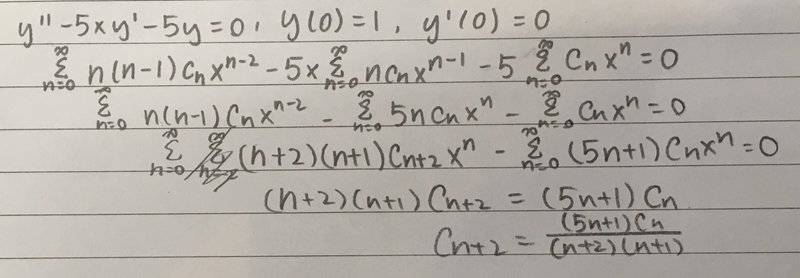 y'' - 5xy' - 5y = 0, y(0) = 1, y'(0) = 0
∑_{n=0}^{∞} n(n-1)C_n x^{n-2} - 5x ∑_{n=0}^{∞} nC_n x^{n-1} - 5 ∑_{n=0}^{∞} C_n x^n = 0
∑_{n=0}^{∞} n(n-1)C_n x^{n-2} - ∑_{n=0}^{∞} 5nC_n x^n - ∑_{n=0}^{∞} C_n x^n = 0
∑_{n=0}^{∞} (n+2)(n+1)C_{n+2} x^n - ∑_{n=0}^{∞} (5n+1)C_n x^n = 0
(n+2)(n+1)C_{n+2} = (5n+1)C_n
C_{n+2} = \frac{(5n+1)C_n}{(n+2)(n+1)}